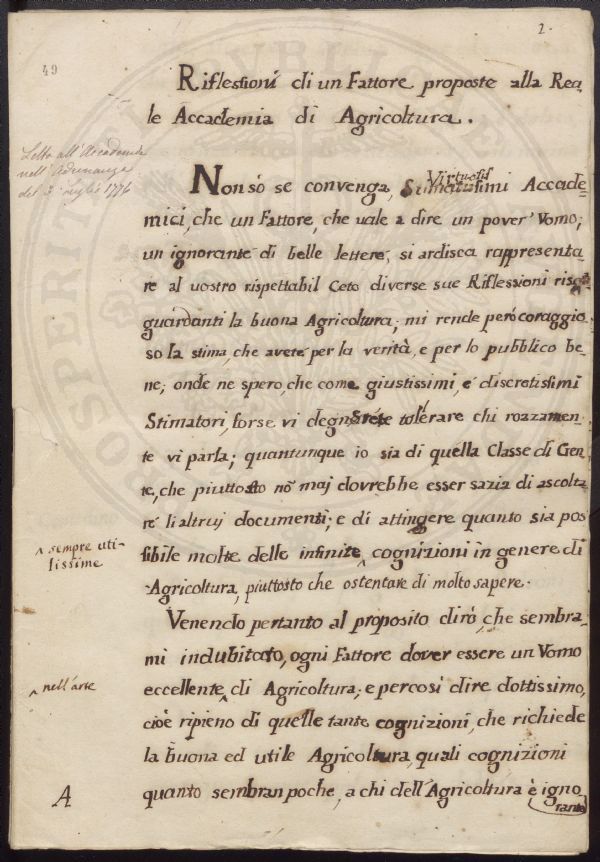 2.
49
Riflessioni di un Fattore proposte alla Rea
le Accademia di Agricoltura.
Letto all'Accademia
nell'Adunanza
del 1776
Virtuosis
Non sò se convenga, simi Accade-
mici, che un Fattore, che vale a dire un pover' Vomo,
un ignorante di belle lettere, si ardisca rappresenta
re al vostro rispettabil Ceto diverse sue Riflessioni risg
guardanti la buona Agricoltura; mi rende però coraggio
so la stima, che avete per la verità, e per lo pubblico be
ne; onde ne spero, che come giustissimi, e discretissimi
Stimatori, forse vi degnarete tolerare chi rozzamen-
te vi parla; quantunque io sia di quella Classe di Gen
te, che piuttosto nõ maj dovrebbe esser sazia di ascolta
re li altruj documenti; e di attingere quanto sia pos
sibile molte delle infinite ^ cognizioni in genere di
^ sempre uti-
lissime
Agricoltura, piuttosto che ostentare di molto sapere.
Venendo pertanto al proposito dirò, che sembra
mi indubitato, ogni Fattore dover essere un Vomo
eccellente ^ di Agricoltura; e percosì dire dottissimo,
^ nell'arte
cioè ripieno di quelle tante cognizioni, che richiede
la buona ed utile Agricoltura, quali cognizioni
quanto sembran poche, a chi dell'Agricoltura è igno
rante
A